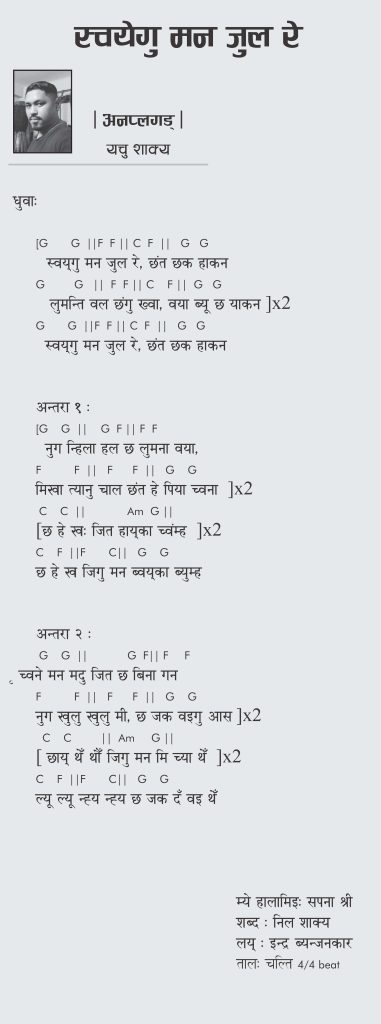 स्वयेगु मन जुल रे
| अनप्लगड् |
यचु शाक्य
धुवाः
[G G ||F F || C F || G G
स्वय्‌गु मन जुल रे, छंत छक हाकन
G G || F F || C F || G G
लुमन्ति वल छंगु ख्वा, वया ब्यू छ याकन ]x2
G G ||F F || C F || G G
स्वय्‌गु मन जुल रे, छंत छक हाकन
अन्तरा १ :
[G G || G F || F F
नुग न्हिला हल छ लुमना वया,
F F || F F || G G
मिखा त्यानु चाल छंत हे पिया च्वना ]x2
C C || Am G ||
[छ हे खः जित हाय्‌का च्वंम्ह ]x2
C F ||F C|| G G
छ हे ख जिगु मन ब्वय्‌का ब्युम्ह
अन्तरा २ :
G G || G F|| F F
च्वने मन मदु जित छ बिना गन
F F || F F || G G
नुग खुलु खुलु मी, छ जक वइगु आस ]x2
C C || Am G ||
[ छाय् थेँ थौँ जिगु मन मि च्या थेँ ]x2
C F ||F C|| G G
ल्यू ल्यू न्ह्य न्ह्य छ जक दँ वइ थेँ
म्ये हालामिइः सपना श्री
शब्द : निल शाक्य
लय् : इन्द्र ब्यन्जनकार
तालः चल्ति 4/4 beat